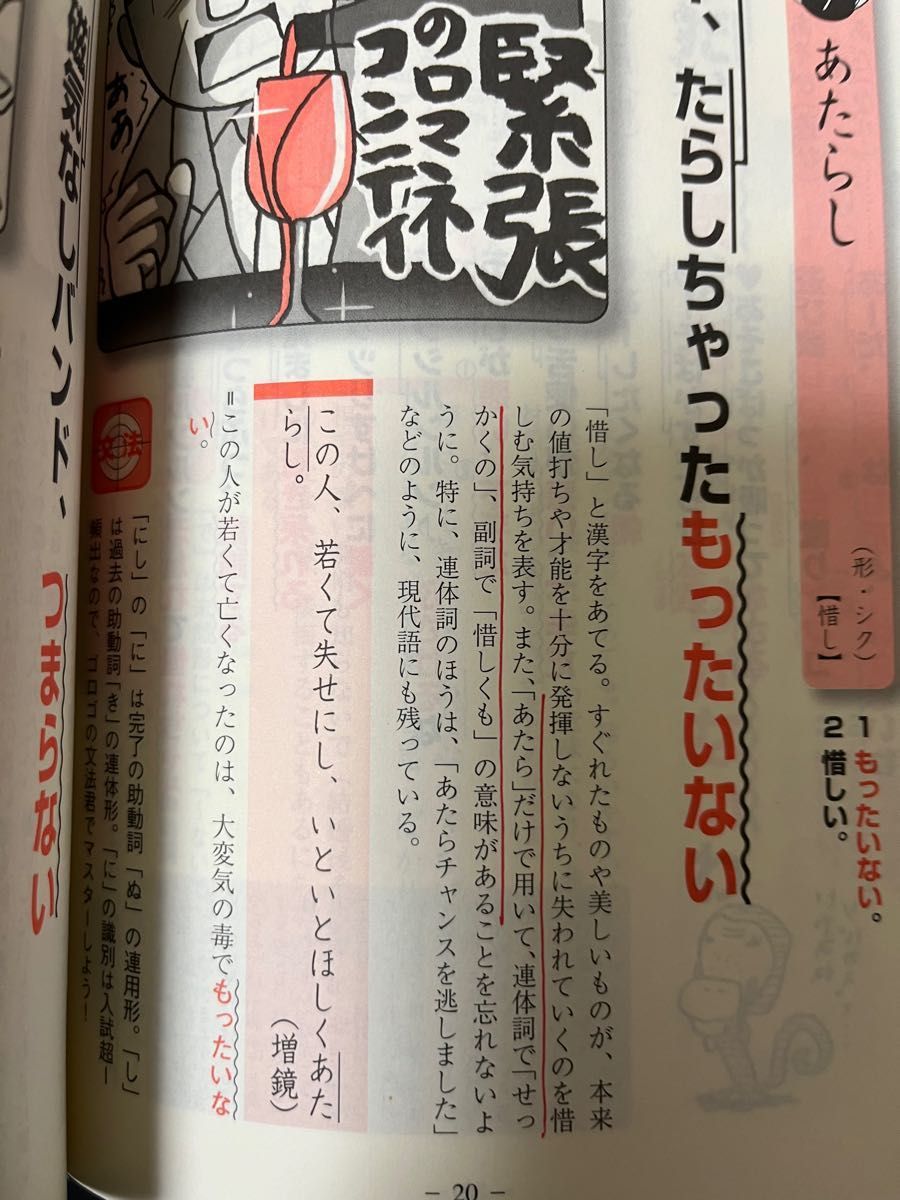 あたらし
（形・シク）
【惜し】
1 もったいない。
2 惜しい。
、たらしちゃったもったいない
緊張
のロマネ
コンティ
ああ
「惜し」と漢字をあてる。すぐれたものや美しいものが、本来
の値打ちや才能を十分に発揮しないうちに失われていくのを惜
しむ気持ちを表す。また、「あたら」だけで用いて、連体詞で「せっ
かくの」、副詞で「惜しくも」の意味があることを忘れないよ
うに。特に、連体詞のほうは、「あたらチャンスを逃しました」
などのように、現代語にも残っている。
この人、若くて失せにし、いといとほしくあた
らし。
（増鏡）
＝この人が若くて亡くなったのは、大変気の毒でもったいな
い。
文法
「にし」の「に」は完了の助動詞「ぬ」の連用形。「し」
は過去の助動詞「き」の連体形。「に」の識別は入試超
頻出なので、ゴロゴの文法君でマスターしよう！
磁気なしバンド、つまらない
－ 20 －